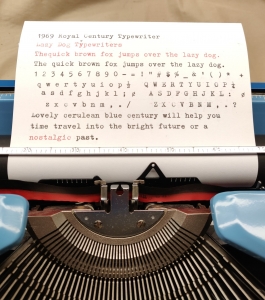 1969 Royal Century Typewriter
Lazy Dog Typewriters
The quick brown fox jumps over the lazy dog.
The quick brown fox jumps over the lazy dog.
1 2 3 4 5 6 7 8 9 0 - = ! " # $ % _ & ' ( ) * +
q w e r t y u i o p ½ Q W E R T Y U I O P ¼
a s d f g h j k l ; A S D F G H J K L :
z x c v b n m , . / Z X C V B N M , . ?
Lovely cerulean blue century will help you
time travel into the bright future or a
nostalgic past.